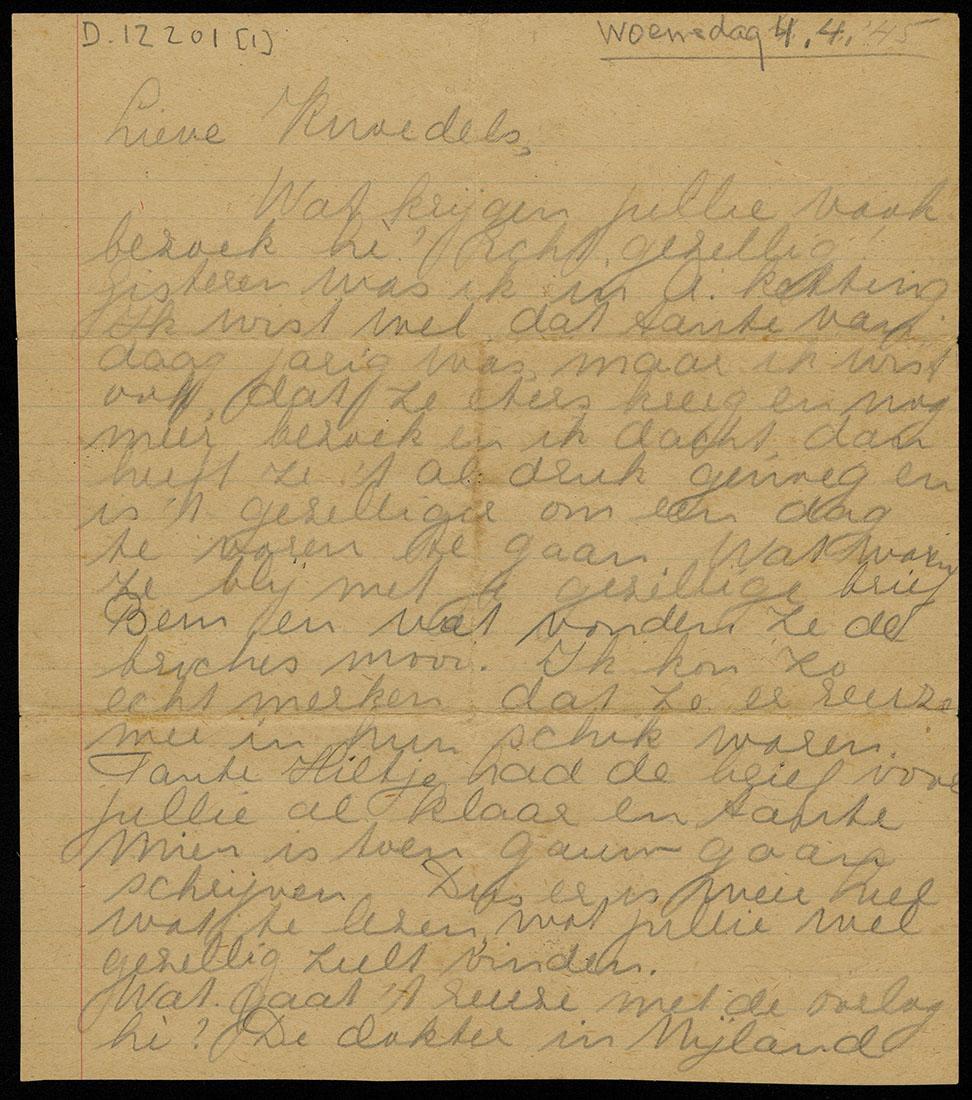 D.12201[1]
Woensdag 4.4.'45
Lieve Knoedels,
Wat krijgen jullie vaak
bezoek hè? Echt gezellig!
Gisteren was ik in
Ik wist wel dat tante van-
daag jarig was, maar ik wist
ook, dat ze eters kreeg en nog
meer bezoek en ik dacht dan
heeft ze 't al druk genoeg en
is 't gezelliger om een dag
te voren te gaan. Wat waren
ze blij met je gezellige brief
Bem en wat vonden ze de
broches mooi. Ik kon zo
echt merken dat ze er reuze
mee in hun schik waren.
Tante Hiltje had de brief voor
jullie al klaar en tante
Mien is toen gauw gaan
schrijven. Dus er is weer heel
wat te lezen, wat jullie wel
gezellig zult vinden.
Wat gaat 't reuze met de oorlog
hè? De dokter in Nijland